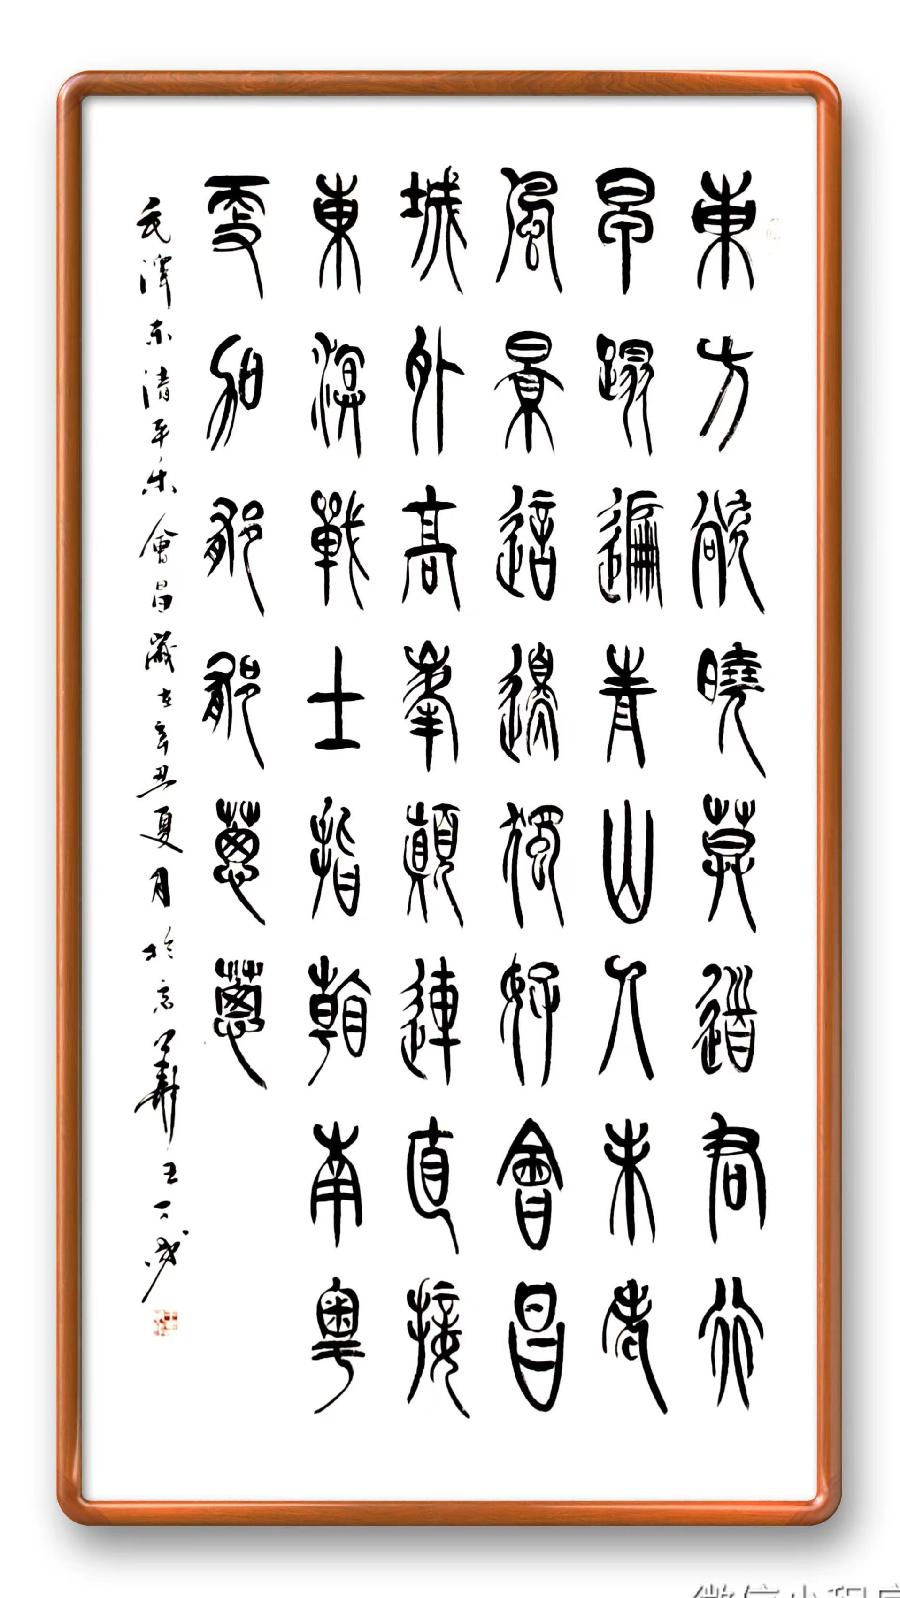 東方欲曉莫道君行
早踢遍青山人未老
風景這邊獨好會昌
城外高峯顛連直接
東溟戰士指看南粵
更加郁郁蔥蔥
毛澤东清平乐會昌歲在辛丑夏月於京華王
微信小程序